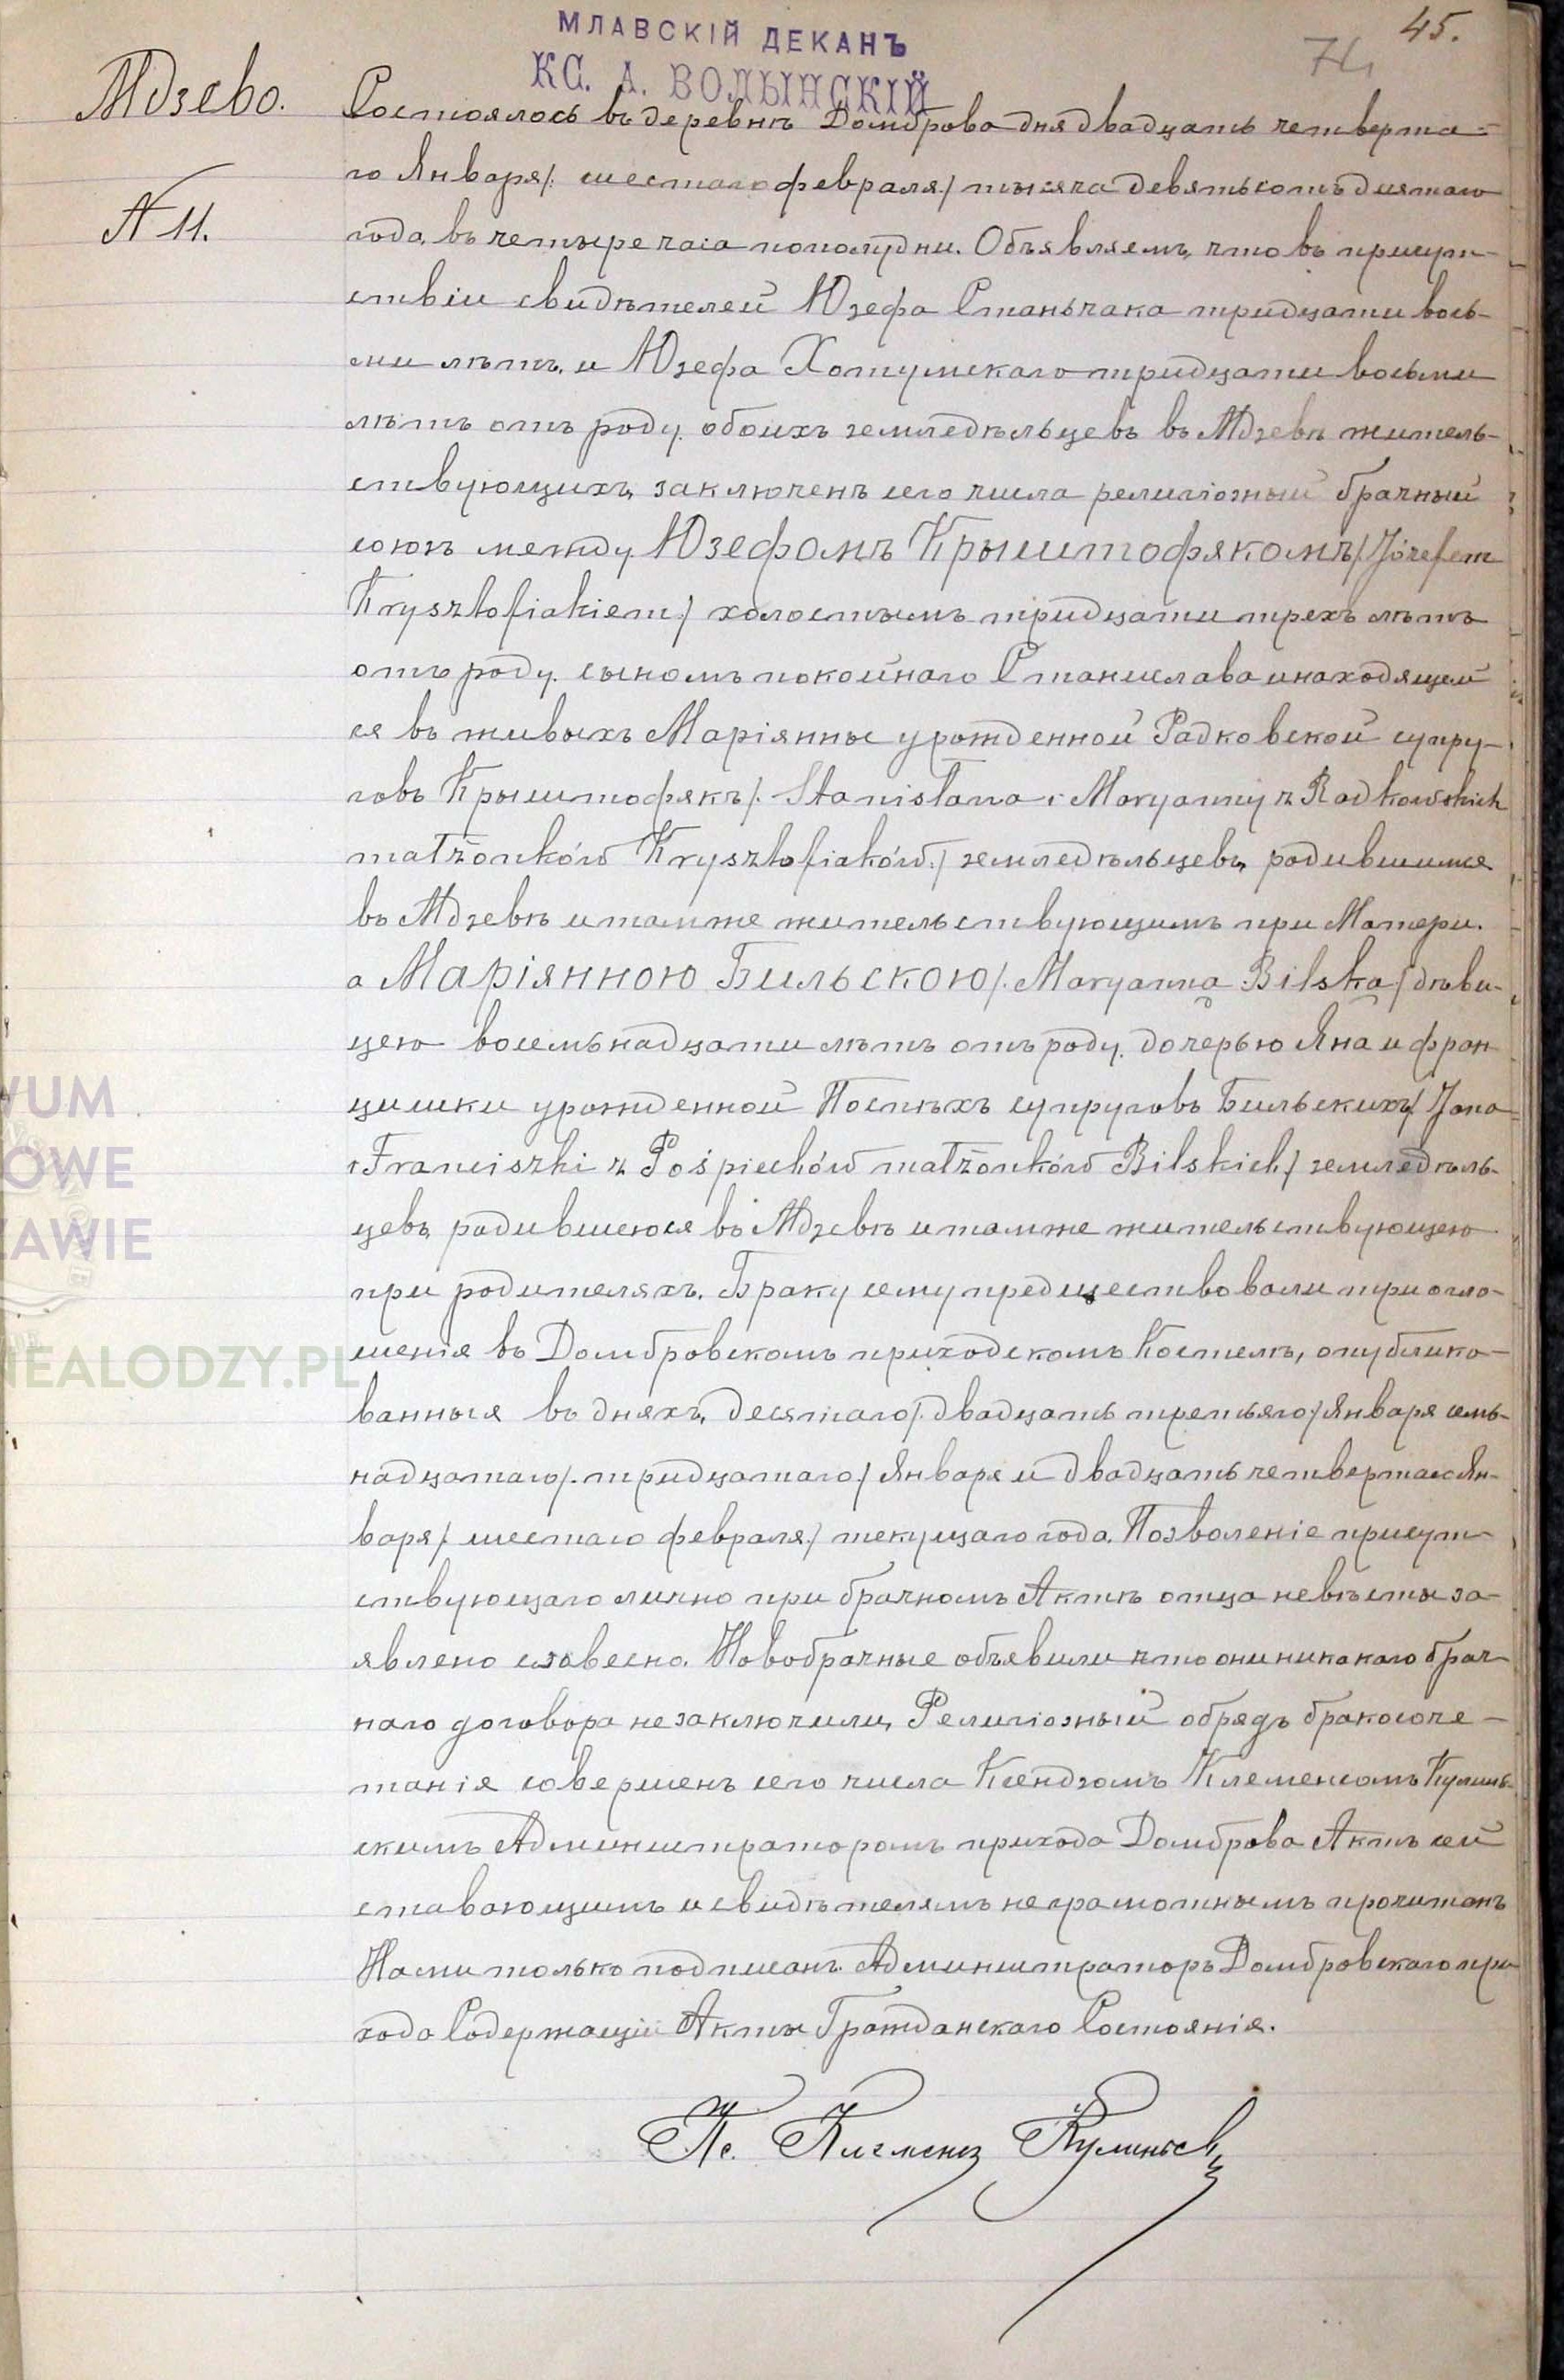 МЛАВСКІЙ ДЕКАНЪ
КС. А. ВОЛЫНСКІЙ
45.
Мдзево.
N 11.
Состоялось въ деревнѣ Домброва дня двадцать четверта-
го Января /: шестаго февраля:/ тысяча девятьсотъ десятаго
года, въ четыре часа пополудни. Объявляемъ, что въ присут-
ствіи свидѣтелей Юзефа Станьчака тридцати вось-
ми лѣтъ, и Юзефа Хотумскаго тридцати восьми
лѣтъ отъ роду, обоихъ земледѣльцевъ въ Мдзевѣ житель-
ствующихъ, заключенъ сего числа религіозный брачный
союзъ между Юзефомъ Крыштофякомъ /: Józefem
Krysztofiakiem :/ холостымъ тридцати трехъ лѣтъ
отъ роду, сыномъ покойнаго Станислава и находящей
ся въ живыхъ Маріянны урожденной Радковской супру-
говъ Крыштофякъ /: Stanisława i Maryanny z Radkowskich
małżonków Krysztofiaków :/ земледѣльцевъ, родившимся
въ Мдзевѣ и тамже жительствующимъ при Матери.
а Маріянною Бильскою /: Maryanną Bilską :/ дѣви-
цею восемьнадцати лѣтъ отъ роду, дочерью Яна и Фран-
цишки урожденной Поспѣхъ супруговъ Бильскихъ /: Jana
i Franciszki z Pośpiechów małżonków Bilskich :/ земледѣль-
цевъ, родившеюся въ Мдзевѣ и тамже жительствующею
при родителяхъ. Браку сему предшествовали три огло-
шенія въ Домбровскомъ приходскомъ Костелѣ, опублико-
ванныя въ дняхъ, десятаго /: двадцать третьяго :/ Января семь-
надцатаго /: тридцатаго :/ Января и двадцать четвертаго Ян-
варя /: шестаго февраля :/ текущаго года. Позволеніе присут-
ствующаго лично при брачномъ Актѣ отца невѣсты за-
явлено словесно. Новобрачные объявили что они никакаго брач-
наго договора не заключили, Религіозный обрядъ бракосоче-
танія совершенъ сего числа Ксендзомъ Клеменсомъ Кулинь-
скимъ Администраторомъ прихода Домброва Актъ сей
ставающимъ и свидѣтелямъ неграмотнымъ прочитанъ
Нами только подписанъ. Администраторъ Домбровскаго при-
хода Содержащій Акты Гражданскаго Состоянія.
Кс. Клеменсъ
WUM
OWE
ZAWIE
NEALODZY.PL